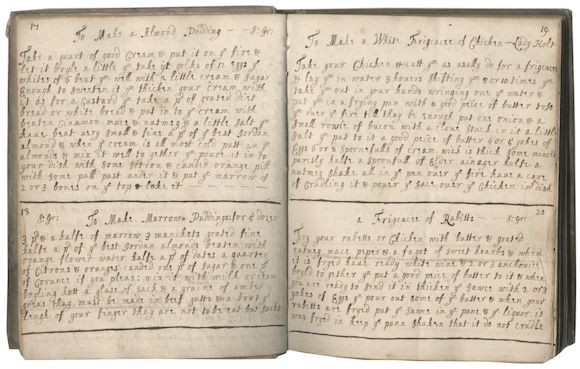 17
To Make a Almond Pudding — S: Gr:
Take a quart of good Cream & put it on ye fire &
let it boyle a little ye take ye yolks of 12 Eggs ye
whites of 6 beat ym well with a little cream & sugar
Enough to sweeten it ye thicken your cream with
it as for a Custard ye take a p of grated diet
bread or white bread & put in to ye cream with
beaten Cinnamon mace & nutmeg & a little Salt ye
have beat very small & fine a p of ye best Jordan
almonds & when ye cream is all most cold putt in ye
almonds & mix it well to gether ye pour it in to
your dish with cittorn & candid orange pill
with some puff past under it & put ye marrow of
2 or 3 bones on ye top & bake it
18
S: Gr: To Make Marrow Puddings for a dozen
3 p & a halfe of marrow 3 manchets grated fine
halfe a p of ye best Jordan almonds beaten with
orange flower water halfe a p of dates a quarter
of Citrons & oranges candid one p of sugar & one p
of Corants if you please mix it with milk or cream
boyling hot a glase of sack & a graine of amber
great they must be made in beef gutts & about ye
length of your finger they are not to be eat but
19
To Make a White Frigicacie of Chicken — Lady Holt
Take your Chicken & cutt ym as usally do for a frigacie
& lay ym in water 3 howers shifting ym 8 or 10 times ye
take ym out in your hands wringing out ye water &
put ym in a frying pan with a good peice of butter toss
ym over ye fire till thay be enough put one onion & a
small rowle of bacon with a clove stuck in it a little
salt ye put to it a good peice of butter 4 or 5 yolks of
Eggs 6 or 8 spoonfulls of cream mick is thick some minced
parsly halfe a spoonfull of Elder vinager halfe a
nutmeg shake all in ye pan over ye fire have a care
of crudling it & power ye sace over ye Chicken in ye dish
20
a Frigicacie of Rabitts — S: Gr:
Fry your rabitts or Chicken with butter & grated
nutmeg mace peper & a fagot of sweet hearbs & when
it is fryed have ready white wine & 2 or 3 anchovis
boyld to gether ye put a good peice of butter to it & when
you are ready to send it in thicken ye sawce with 2 or 3
yolkes of Eggs ye pour out some of ye butter & when your
rabitts are fryed put ye sawce in ye pan & ye liquor it
was fryed in keep ye pann shaken that it do not crudle